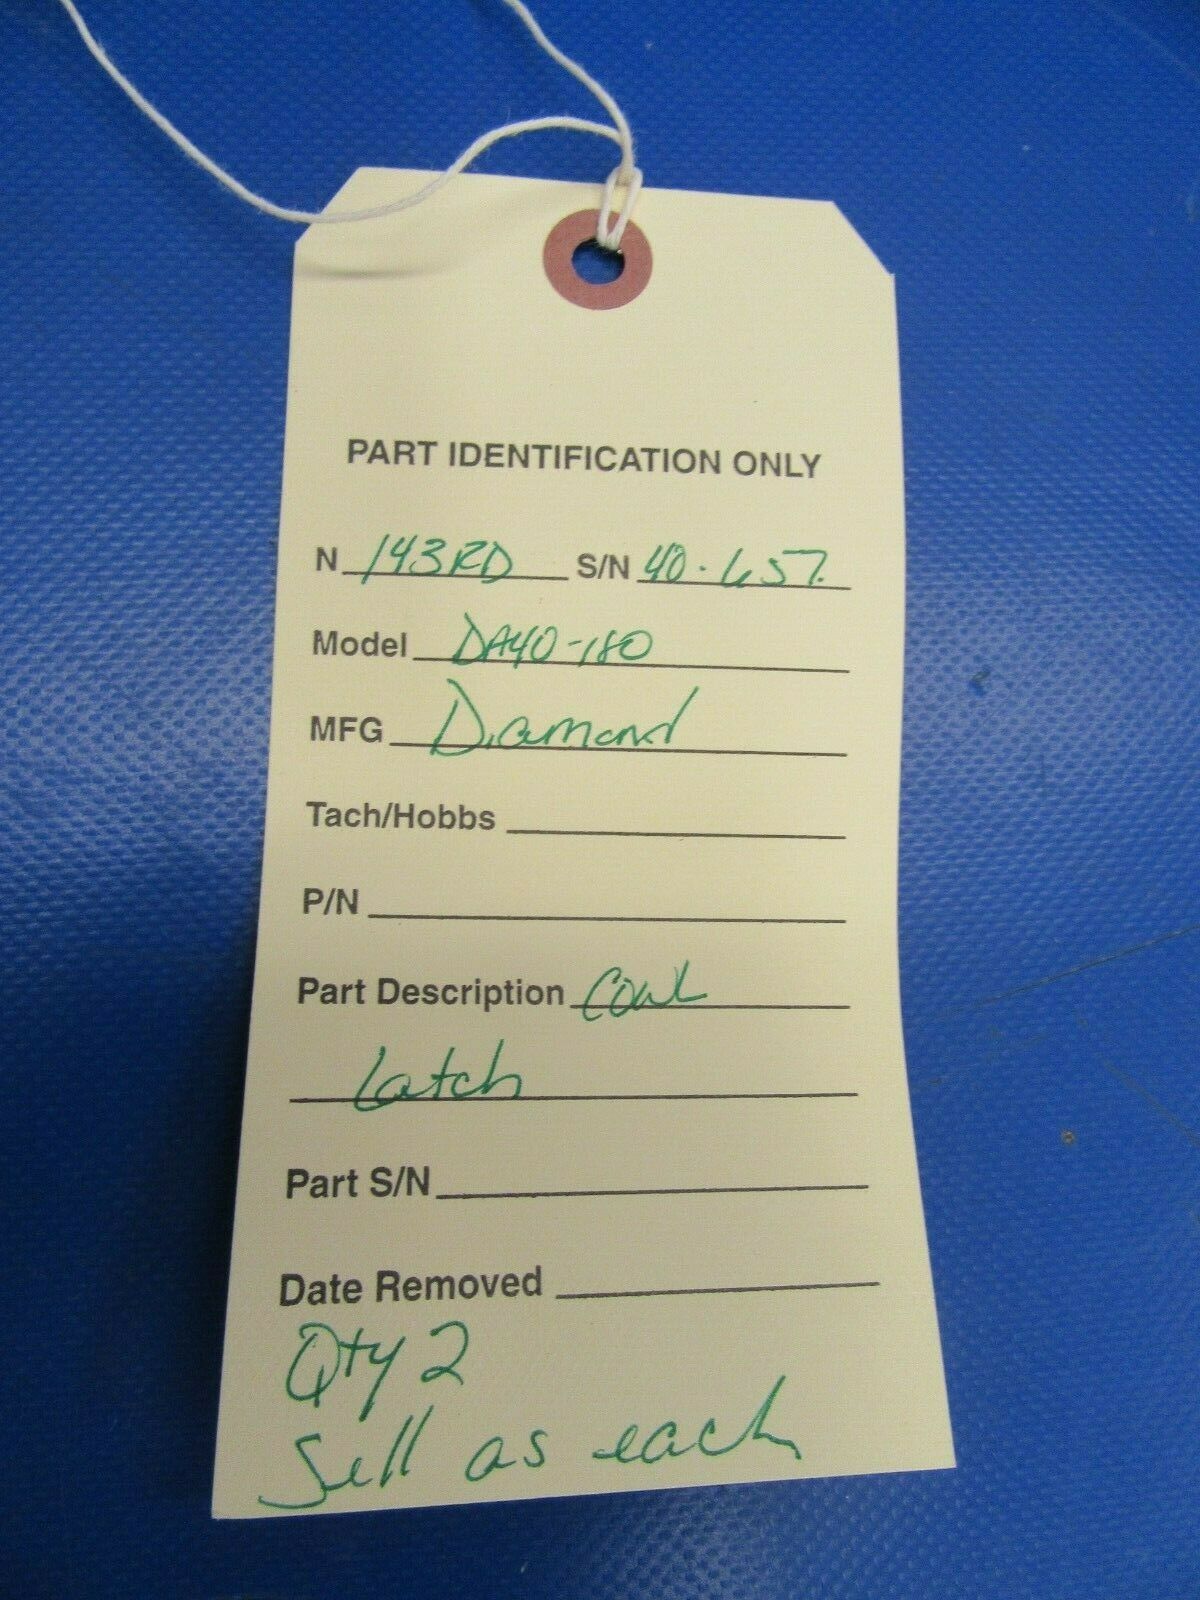 PART IDENTIFICATION ONLY
N 143RD S/N 40.657.
Model DA40-180
MFG Diamond
Tach/Hobbs
P/N
Part Description Cowl
Latch
Part S/N
Date Removed
Qty 2
Sell as each